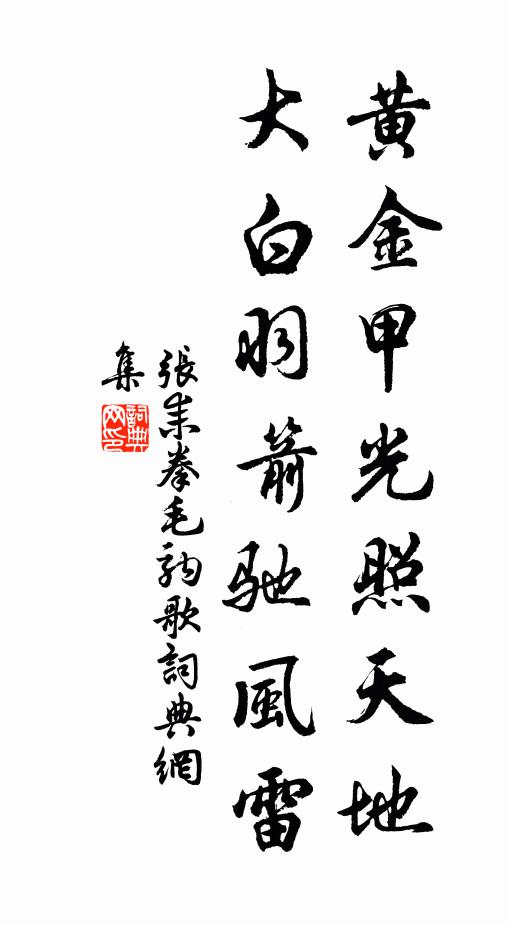 黄金甲光照天地
大白羽箭馳風雷
張耒拳毛騧歌詞典網
集
詞典
网印